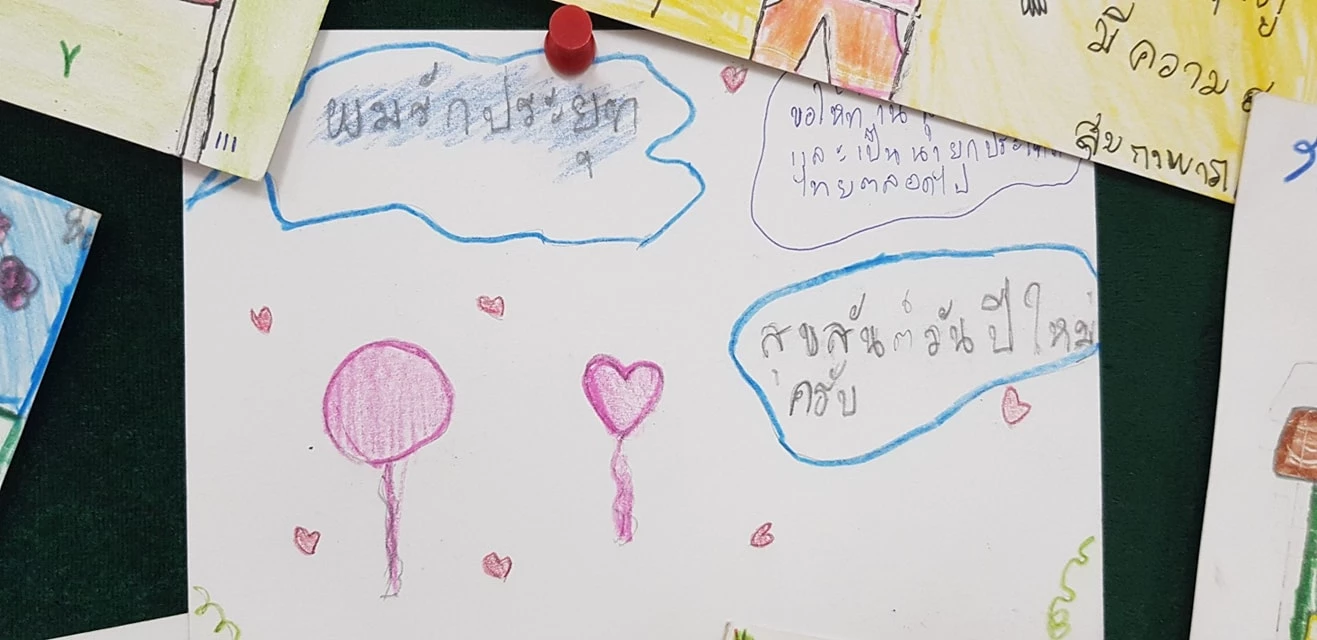 ผมรักประยุท
ขอให้ท่าน
และเป็นนายกประเทศ
ไทยตลอดไป
สุขสันต์วันปีใหม่
ครับ
มีความ
สุขภาพ